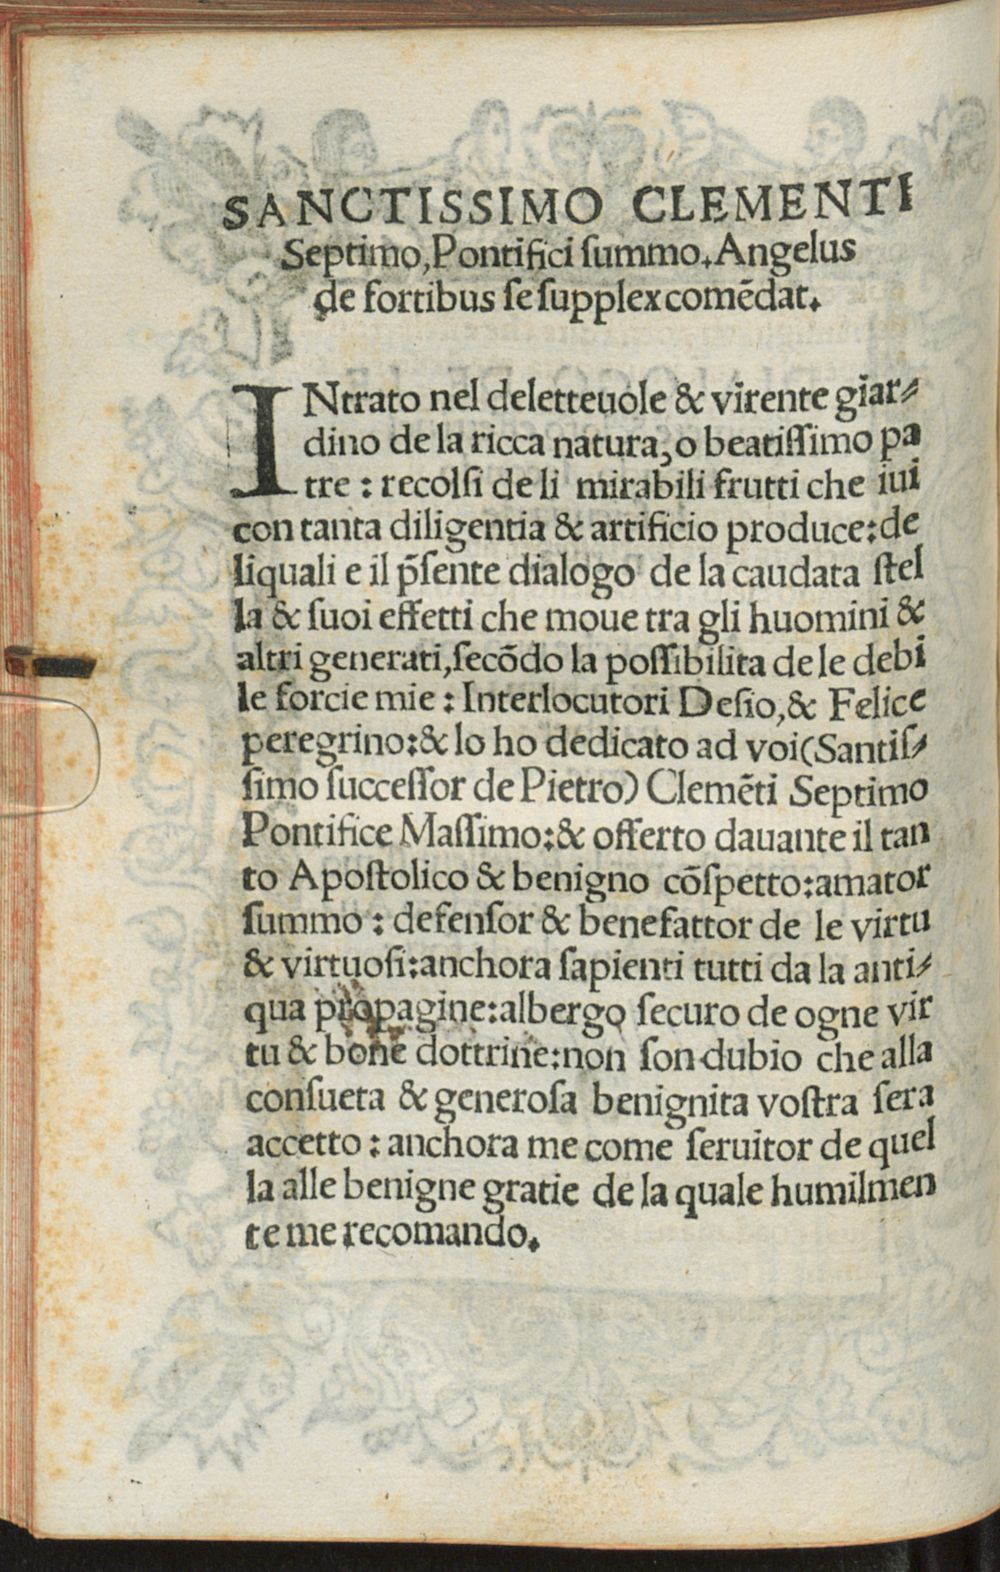 SANCTISSIMO CLEMENTI
Septimo, Pontifici ſummo. Angelus
de fortibus ſe ſupplex comēdat.
INtrato nel deletteuole & virente giar⸗
dino de la ricca natura, o beatiſſimo pa
tre : recolſi de li mirabili frutti che iui
con tanta diligentia & artificio produce: de
liquali e il p̄ſente dialogo de la caudata ſtel
la & ſuoi effetti che moue tra gli huomini &
altri generati, ſecōdo la poſſibilita de le debi
le forcie mie : Interlocutori Deſio, & Felice
peregrino: & lo ho dedicato ad voi (Santiſ⸗
ſimo ſucceſſor de Pietro) Clemēti Septimo
Pontifice Maſſimo: & offerto dauante il tan
to Apoſtolico & benigno cōſpetto: amator
ſummo : defenſor & benefattor de le virtu
& virtuoſi: anchora ſapienti tutti da la anti⸗
qua propagine: albergo ſecuro de ogne vir
tu & bone dottrine: non ſon dubio che alla
conſueta & generoſa benignita voſtra ſera
accetto : anchora me come ſeruitor de quel
la alle benigne gratie de la quale humilmen
te me recomando.